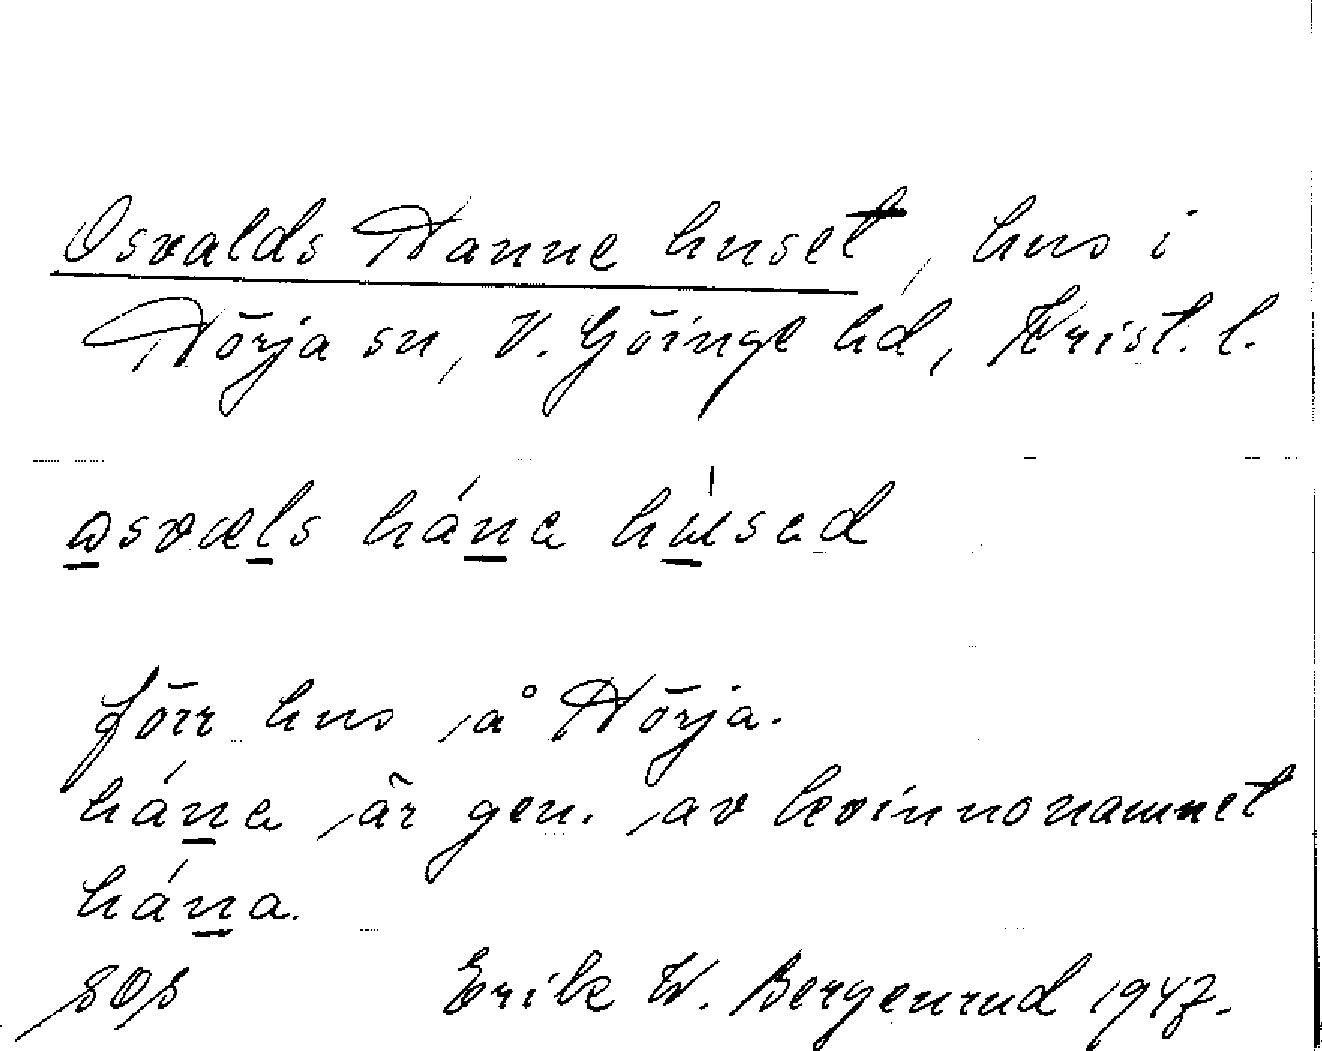 Osvalds Hanne huset, hus i
Hörja sn, V. Göinge hd, Krist. l.
osvæls háne húsed
förr hus å Hörja.
háne är gen. av kvinnonamnet
hána.
Erik W. Bergenrud 1947.